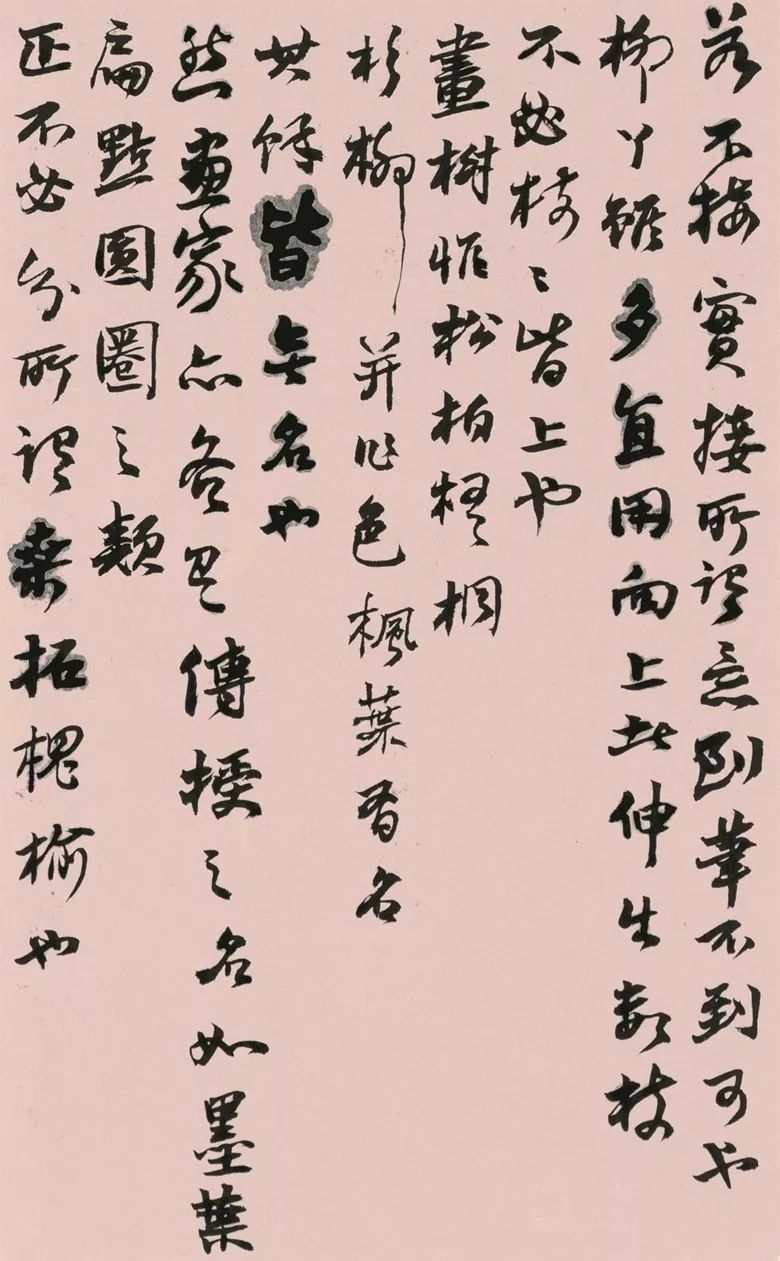 若不接實接所謂意到筆不到可也
柳丫多直用向上此伸生數枝
不必枝〻皆上也
畫樹惟松柏梧桐
杉柳并作色楓葉有名
其餘皆無名也
然畫家亦各傳授之名如墨葉
扁點圓圈之類
正不必分所謂桑柘槐榆也